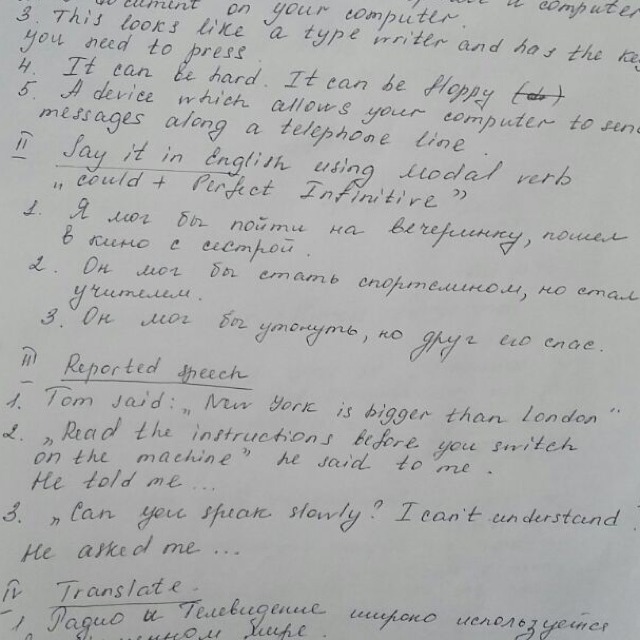 document on your computer.
3. This looks like a type writer and has the
you need to press
4. It can be hard. It can be floppy
5. A device which allows your computer to send
messages along a telephone line.
II Say it in English using Modal verb
„could + Perfect Infinitive”
1. Я мог бы пойти на вечеринку, пошел
в кино с сестрой.
2. Он мог бы стать спортсменом, но стал
учителем.
3. Он мог бы утонуть, но друг его спас.
III Reported speech
1. Tom said: „New York is bigger than London"
2. „Read the instructions before you switch
on the machine" he said to me.
He told me ...
3. „Can you speak slowly? I can't understand
He asked me ...
IV Translate.
1. Радио и Телевидение широко используется
мире.